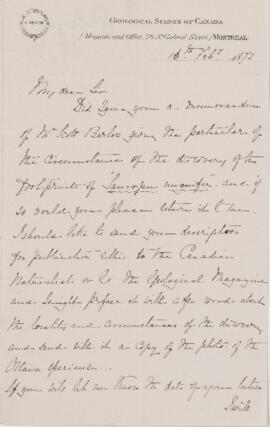 GEOLOGICAL SURVEY OF CANADA
(Museum and Office, 76 St Gabriel Street) MONTREAL
16th Feby 1872
My dear Sir
Did I give you a memorandum
of Mr Scott Barlow giving the particulars of
the circumstances of the discovery of the
footprints of Sauropus and if
so would you please return it to me.
I should like to send your description
for publication either to the Canadian
Naturalist or to the Geological Magazine
and I might preface it with a few words about
the locality and circumstances of the discovery
and send with it a copy of the photo of the
Ottawa specimen
If you will let me know the date of your lecture
I will